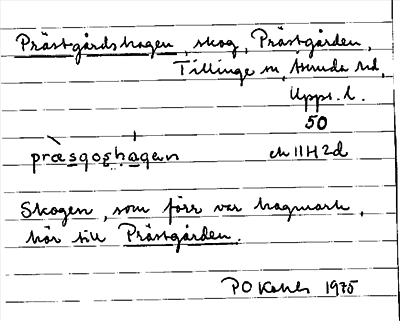 Prästgårdshagen, skog, Prästgården,
Tillinge sn, Åsunda hd,
Uppl. l.
50
præsgoshagen ek 11H2d
Skogen, som förr var hagmark,
hör till Prästgården.
PO 1975